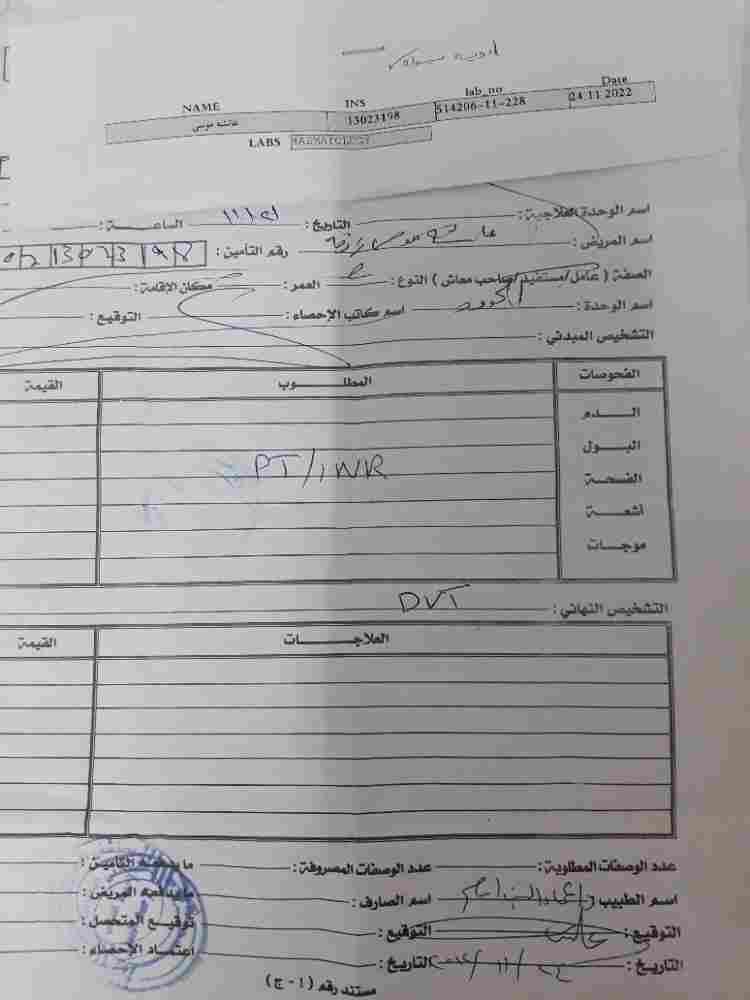 NAME INS lab_no Date
عائشة موسى 13023198 514206-11-228 24 11 2022
LABS HAEMATOLOGY
اسم الوحدة العلاجية : التاريخ : الساعــة :
اسم المريض : عائشة موسى رقم التأمين : 02 13023198
الصفة ( عامل/مستفيد/صاحب معاش ) النوع : العمر : مكان الإقامة :
اسم الوحدة : اسم كاتب الإحصاء : التوقيع :
التشخيص المبدئي :
الفحوصات المطلــوب القيمة
الــدم
البــول
PT/INR
الفحـة
أشعــة
موجـات
التشخيص النهائي : DVT
العلاجــات القيمة
عدد الوصفات المطلوبة : عدد الوصفات المصروفة : ما يدفعه التأمين :
اسم الطبيب اسم الصارف : ما يدفعه المريض :
التوقيع : التوقيع : توقيع المتحصل :
التاريخ : التاريخ : اعتماد الإحصاء :
مستند رقم (١ - ج)